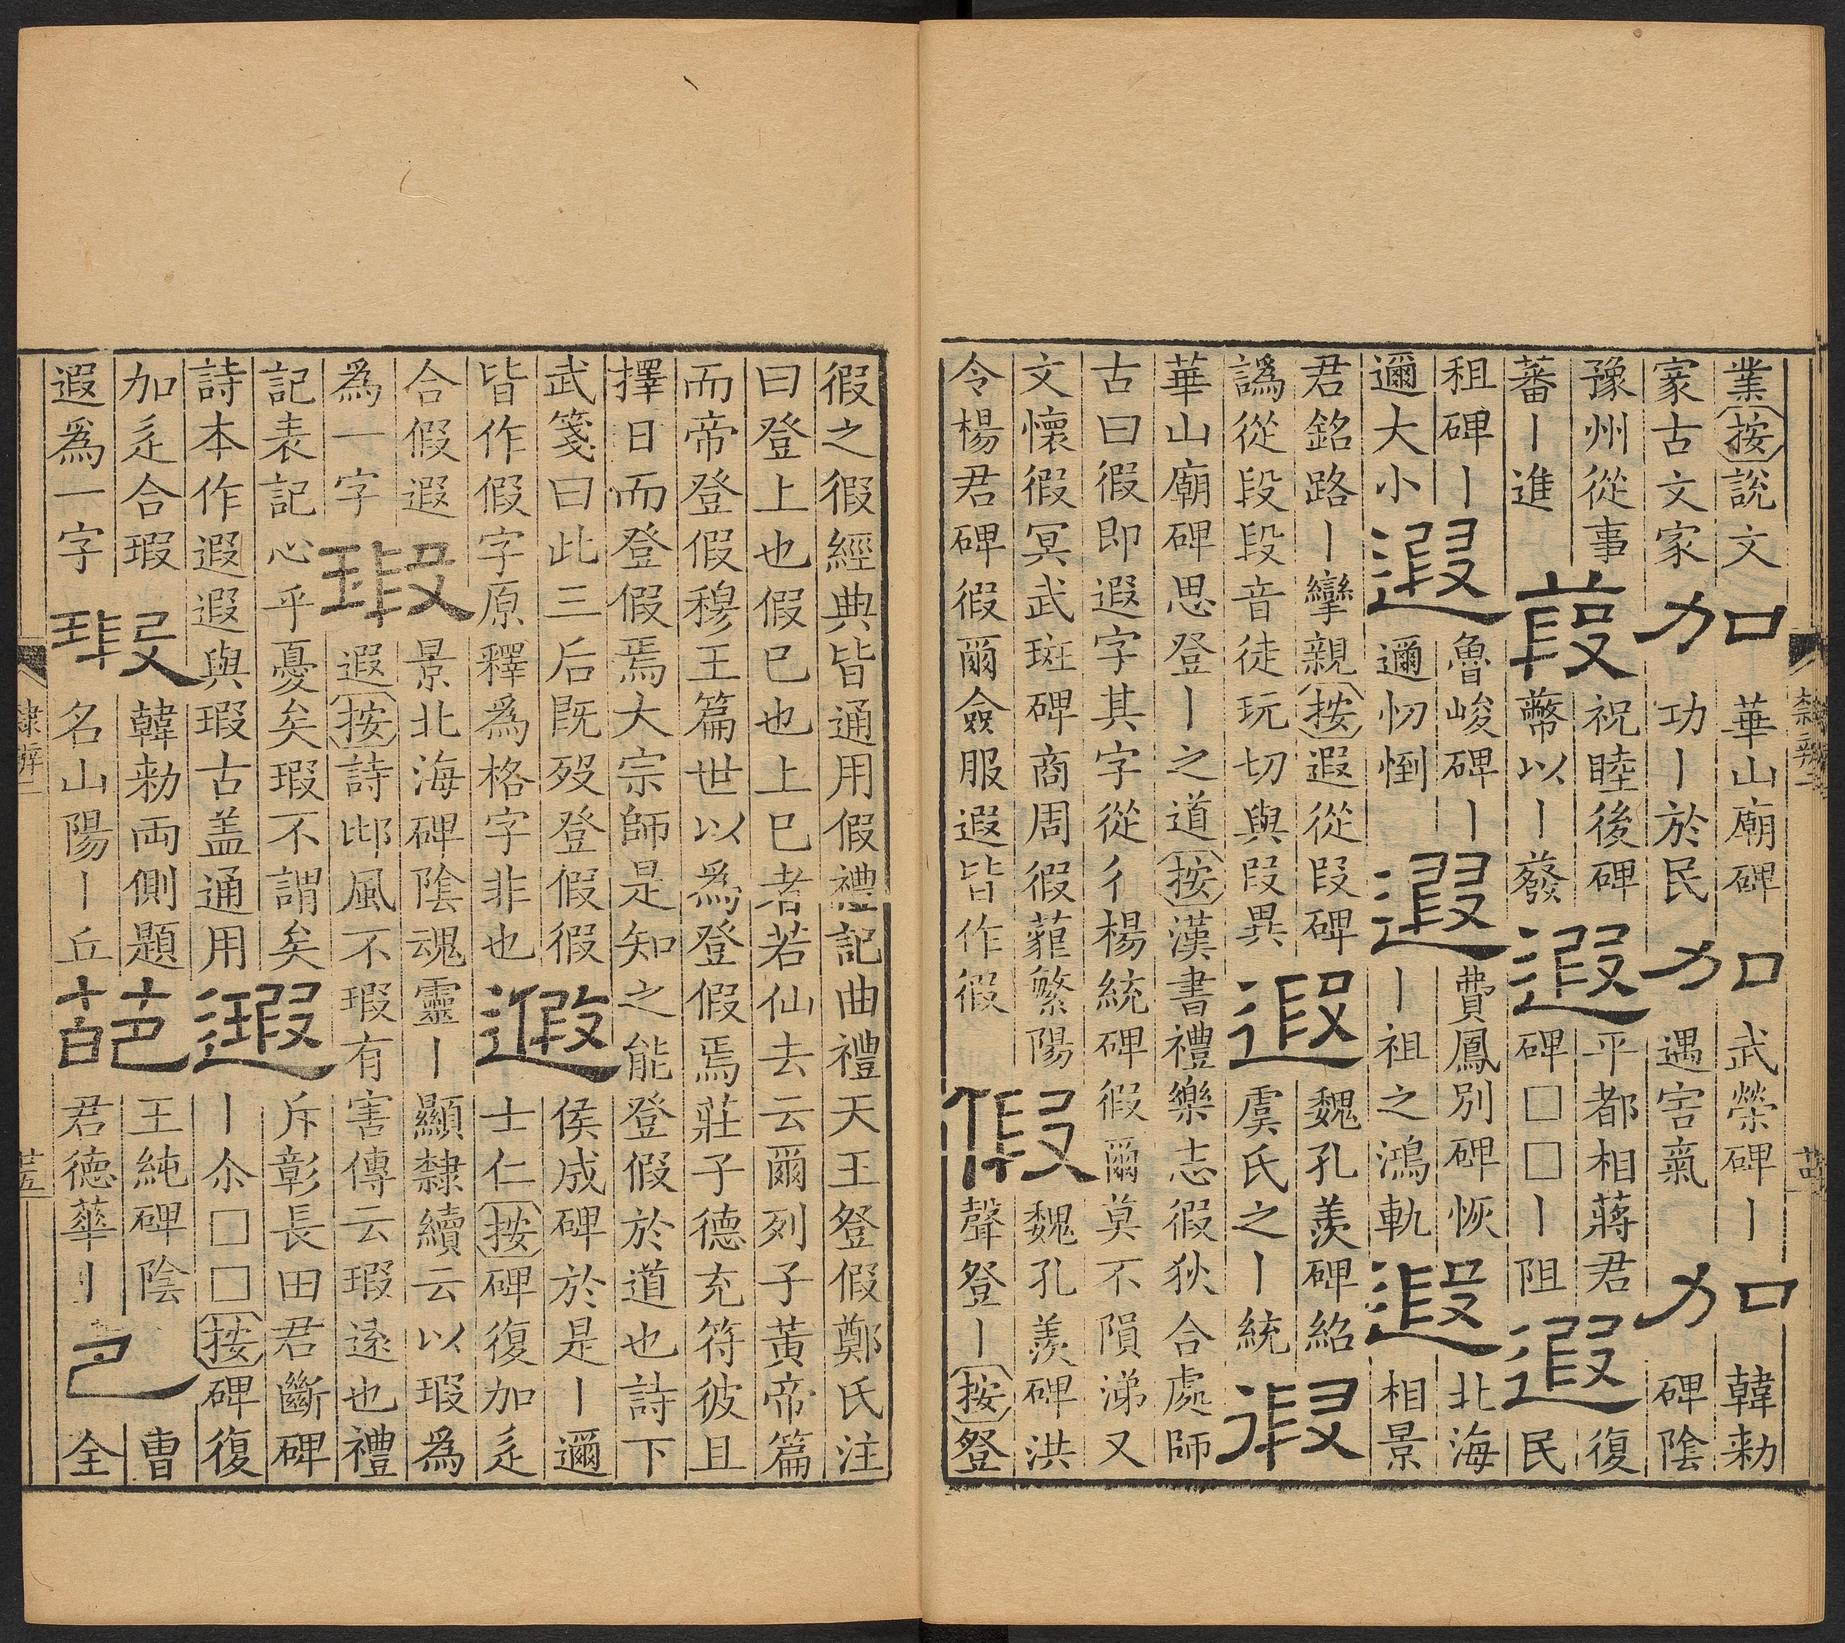 業按說文
家古文家
加
華山廟碑
功丨於民
加
武榮碑丨
遇害氣
加
韓勑
碑陰
豫州從事
蕃丨進
葭
祝睦後碑
幣以丨發
遐
平都相蔣君
碑□□丨阻
遐
復
民
租碑丨
邇大小
遐
魯峻碑丨
邇忉
遐
費鳳別碑恢
丨祖之鴻軌
遐
北海
相景
君銘路丨攣親按遐從叚碑
譌從段段音徒玩切與叚異
遐
魏孔羨碑紹
虞氏之丨統
徦
華山廟碑思登丨之道按漢書禮樂志徦狄合處師
古曰徦即遐字其字從彳楊統碑徦爾莫不隕涕又
文懷徦冥武斑碑商周徦藐繁陽
令楊君碑徦爾僉服遐皆作徦
假
魏孔羨碑洪
聲登丨按登
隸辨二
徦之徦經典皆通用假禮記曲禮天王登假鄭氏注
曰登上也假已也上已者若仙去云爾列子黃帝篇
而帝登假穆王篇世以為登假焉莊子德充符彼且
擇日而登假焉大宗師是知之能登假於道也詩下
武箋曰此三后既歿登假徦
皆作假字原釋為格字非也
遐
侯成碑於是丨邇
士仁按碑復加辵
合假遐
為一字
瑕
景北海碑陰魂靈丨顯隸續云以瑕為
遐按詩邶風不瑕有害傳云瑕遠也禮
記表記心乎憂矣瑕不謂矣
詩本作遐遐與瑕古盖通用
瑕
斥彰長田君斷碑
丨尒□□按碑復
加辵合瑕
遐為一字
瑕
韓勑兩側題
名山陽丨丘
葩
王純碑陰
君德華丨
巴
曹
全
隸辨二
廿五